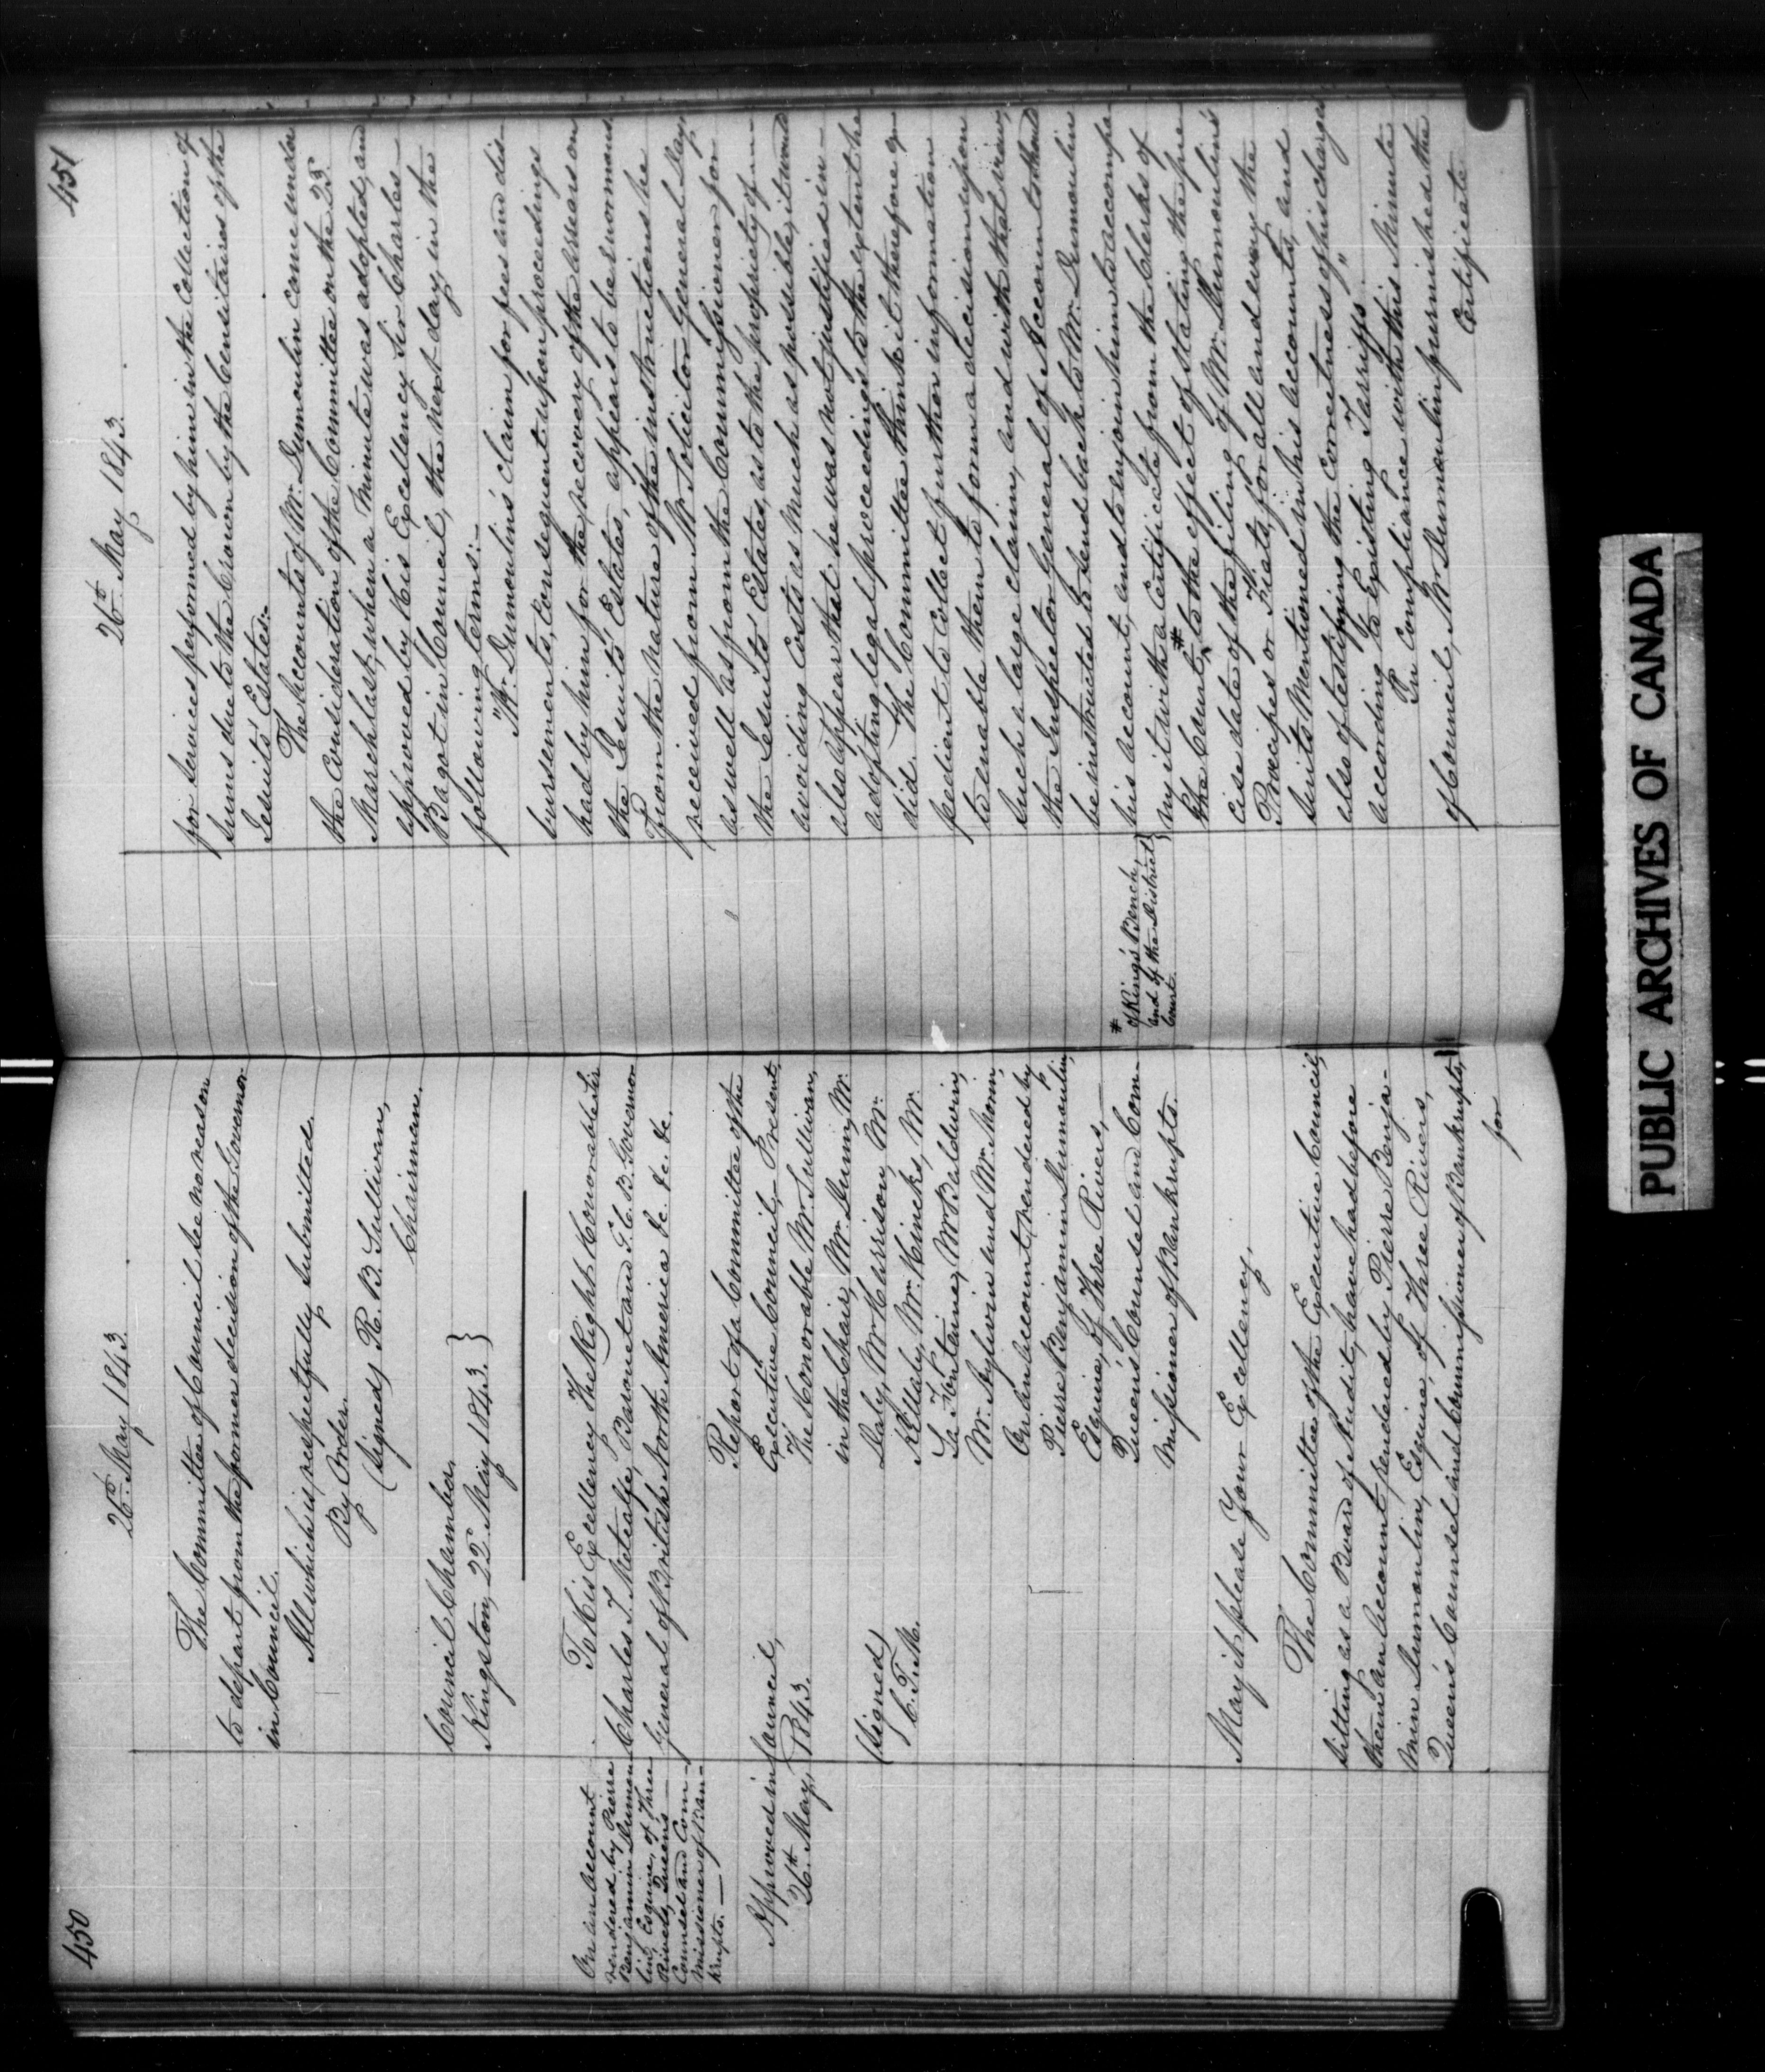 450
26th May 1843.
The Committee of Council see no reason
to depart from the former decision of the Governor
in Council.
All which is respectfully submitted.
By Order.
(Signed) R. B. Sullivan,
Chairman.
Council Chamber,
Kingston, 22d May 1843. }
On an account
rendered by Pierre
Benjamin Dumou
lin, Esquire, of Three
Rivers, Queen's
Counsel and Com-
missioner of Ban-
krupts. —
To His Excellency The Right Honorable Sir
Charles T. Metcalfe, Baronet and G. C. B. Governor
General of British North America &c. &c. &c.
Approved in Council,
26th May, 1843.
(signed)
C. T. M.
Report of a Committee of the
Executive Council, — Present,
The Honorable Mr. Sullivan,
in the Chair, Mr. Dunn, Mr.
Daly, Mr. Harrison, Mr.
Killaly, Mr. Hincks, Mr.
La Fontaine, Mr. Baldwin,
Mr. Aylwin and Mr. Morin,
On an account rendered by
Pierre Benjamin Dumoulin,
Esquire, of Three Rivers, —
Queen's Counsel and Com-
missioner of Bankrupts.
May it please Your Excellency,
The Committee of the Executive Council,
sitting as a Board of Audit, have had before
them an account rendered by Pierre Benja-
min Dumoulin, Esquire, of Three Rivers,
Queen's Counsel and Commissioner of Bankrupts,
for
451
26th May 1843.
for services performed by him in the Collection of
sums due to the Crown by the Censitaires of the
Jesuits' Estates.
The Accounts of Mr. Dumoulin came under
the Consideration of the Committee on the 25th
March last, when a Minute was adopted, and
approved by His Excellency Sir Charles
Bagot in Council, the next day, in the
following terms: —
"Mr. Dumoulin's claim for fees and dis-
bursements, consequent upon proceedings
had by him for the recovery of the arrears on
the Jesuits' Estates, appears to be enormous.
From the nature of the instructions he
received from Mr. Solicitor General Day,
as well as from the Commissioner for
the Jesuits' Estates, as to the propriety of
avoiding Costs as much as possible, it would
also appear that he was not justified in
adopting legal proceedings to the extent he
did. The Committee think it therefore ex
pedient to collect further information
to enable them to form a decision upon
such a large claim, and with that view,
the Inspector General of Accounts should
be instructed to send back to Mr. Dumoulin
his account, and to enjoin him to accompa
ny it with a Certificate from the Clerks of
the Court # to the effect of stating the pre
cise date of the filing of Mr. Dumoulin's
Præcipes or Fiats, for all and every the
suits mentioned in his accounts, and
also of testifying the correctness of his charges
according to existing Tarriffs."
In compliance with this Minute
of Council, Mr. Dumoulin furnished the
Certificate
# of King's Bench,
and of the District
Court.
PUBLIC ARCHIVES OF CANADA